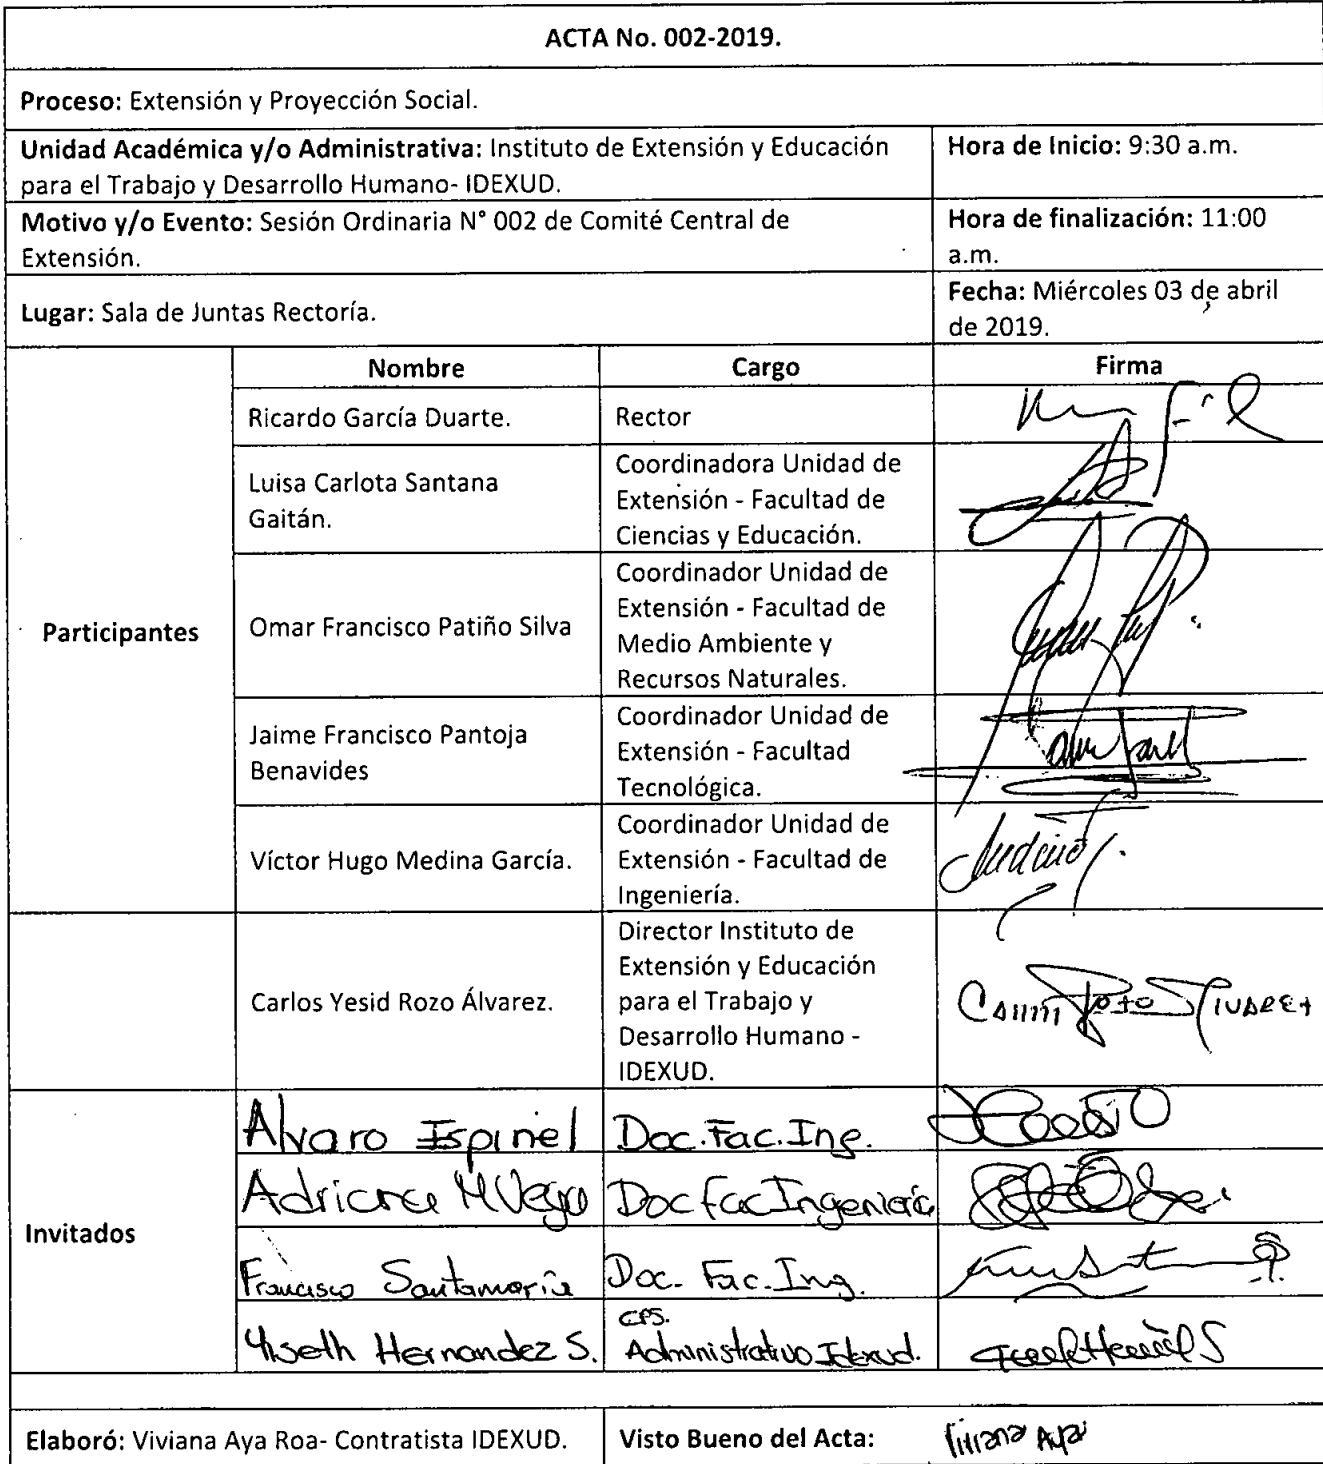 ACTA No. 002-2019.
Proceso: Extensión y Proyección Social.
Unidad Académica y/o Administrativa: Instituto de Extensión y Educación
para el Trabajo y Desarrollo Humano- IDEXUD.
Hora de Inicio: 9:30 a.m.
Motivo y/o Evento: Sesión Ordinaria N° 002 de Comité Central de
Extensión.
Hora de finalización: 11:00
a.m.
Lugar: Sala de Juntas Rectoría.
Fecha: Miércoles 03 de abril
de 2019.
Participantes
Nombre
Cargo
Firma
Ricardo García Duarte.
Rector
Luisa Carlota Santana
Gaitán.
Coordinadora Unidad de
Extensión - Facultad de
Ciencias y Educación.
Omar Francisco Patiño Silva
Coordinador Unidad de
Extensión - Facultad de
Medio Ambiente y
Recursos Naturales.
Jaime Francisco Pantoja
Benavides
Coordinador Unidad de
Extensión - Facultad
Tecnológica.
Víctor Hugo Medina García.
Coordinador Unidad de
Extensión - Facultad de
Ingeniería.
Carlos Yesid Rozo Álvarez.
Director Instituto de
Extensión y Educación
para el Trabajo y
Desarrollo Humano -
IDEXUD.
Invitados
Alvaro Espinel
Doc. Fac. Ing.
Adriana M Vega
Doc Fac Ingeniería
Francisco Santamaría
Doc. Fac. Ing.
Yiseth Hernandez S.
CPS.
Administrativo Idexud.
Elaboró: Viviana Aya Roa- Contratista IDEXUD.
Visto Bueno del Acta:
Viviana Aya